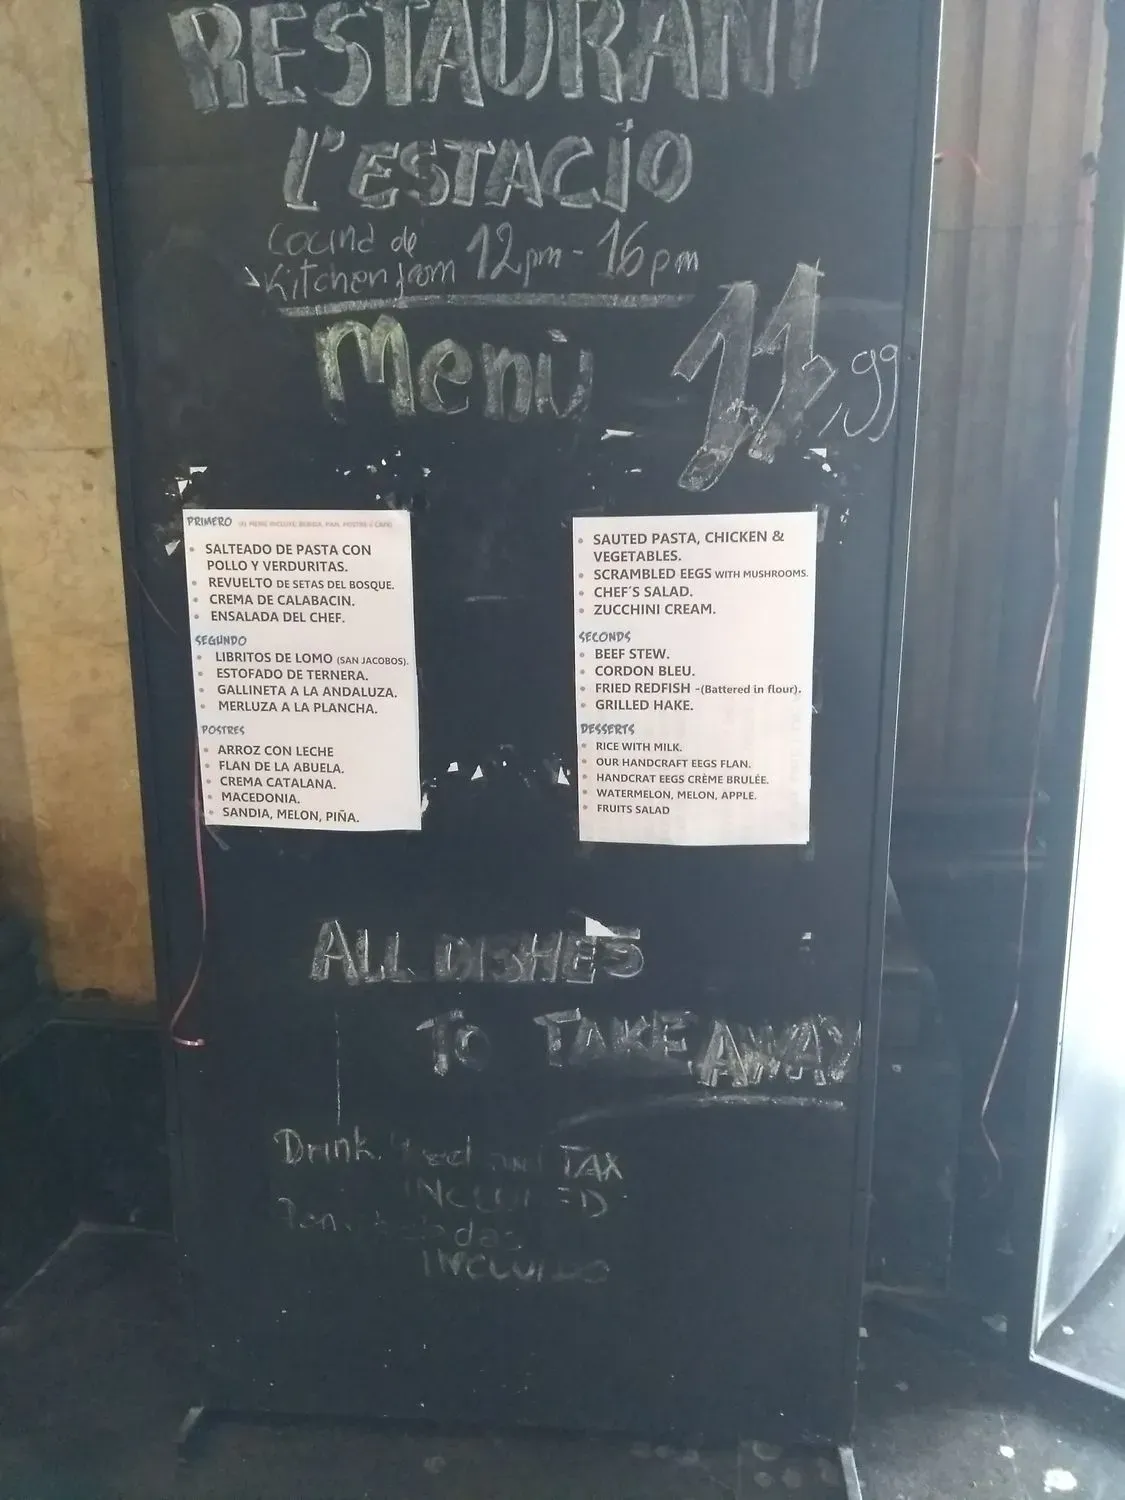 RESTAURANT
L'ESTACIÓ
Cocina de
Kitchen from 12pm - 16pm
Menú 11,99
PRIMERO (EL MENÚ INCLUYE: BEBIDA, PAN, POSTRE o CAFÉ)
• SALTEADO DE PASTA CON
POLLO Y VERDURITAS.
• REVUELTO DE SETAS DEL BOSQUE.
• CREMA DE CALABACIN.
• ENSALADA DEL CHEF.
SEGUNDO
• LIBRITOS DE LOMO (SAN JACOBOS).
• ESTOFADO DE TERNERA.
• GALLINETA A LA ANDALUZA.
• MERLUZA A LA PLANCHA.
POSTRES
• ARROZ CON LECHE
• FLAN DE LA ABUELA.
• CREMA CATALANA.
• MACEDONIA.
• SANDIA, MELON, PIÑA.
• SAUTED PASTA, CHICKEN &
VEGETABLES.
• SCRAMBLED EEGS WITH MUSHROOMS.
• CHEF´S SALAD.
• ZUCCHINI CREAM.
SECONDS
• BEEF STEW.
• CORDON BLEU.
• FRIED REDFISH -(Battered in flour).
• GRILLED HAKE.
DESSERTS
• RICE WITH MILK.
• OUR HANDCRAFT EEGS FLAN.
• HANDCRAT EEGS CRÈME BRULÉE.
• WATERMELON, MELON, APPLE.
• FRUITS SALAD
ALL DISHES
TO TAKE AWAY
Drink and TAX
INCLUDED
INCLUIDO